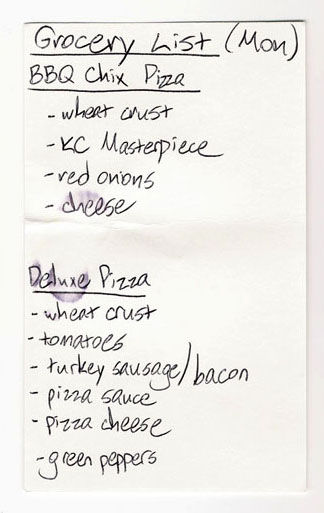 Grocery List (Mon)
BBQ Chix Pizza
- wheat crust
- KC Masterpiece
- red onions
- cheese
Deluxe Pizza
- wheat crust
- tomatoes
- turkey sausage/bacon
- pizza sauce
- pizza cheese
- green peppers